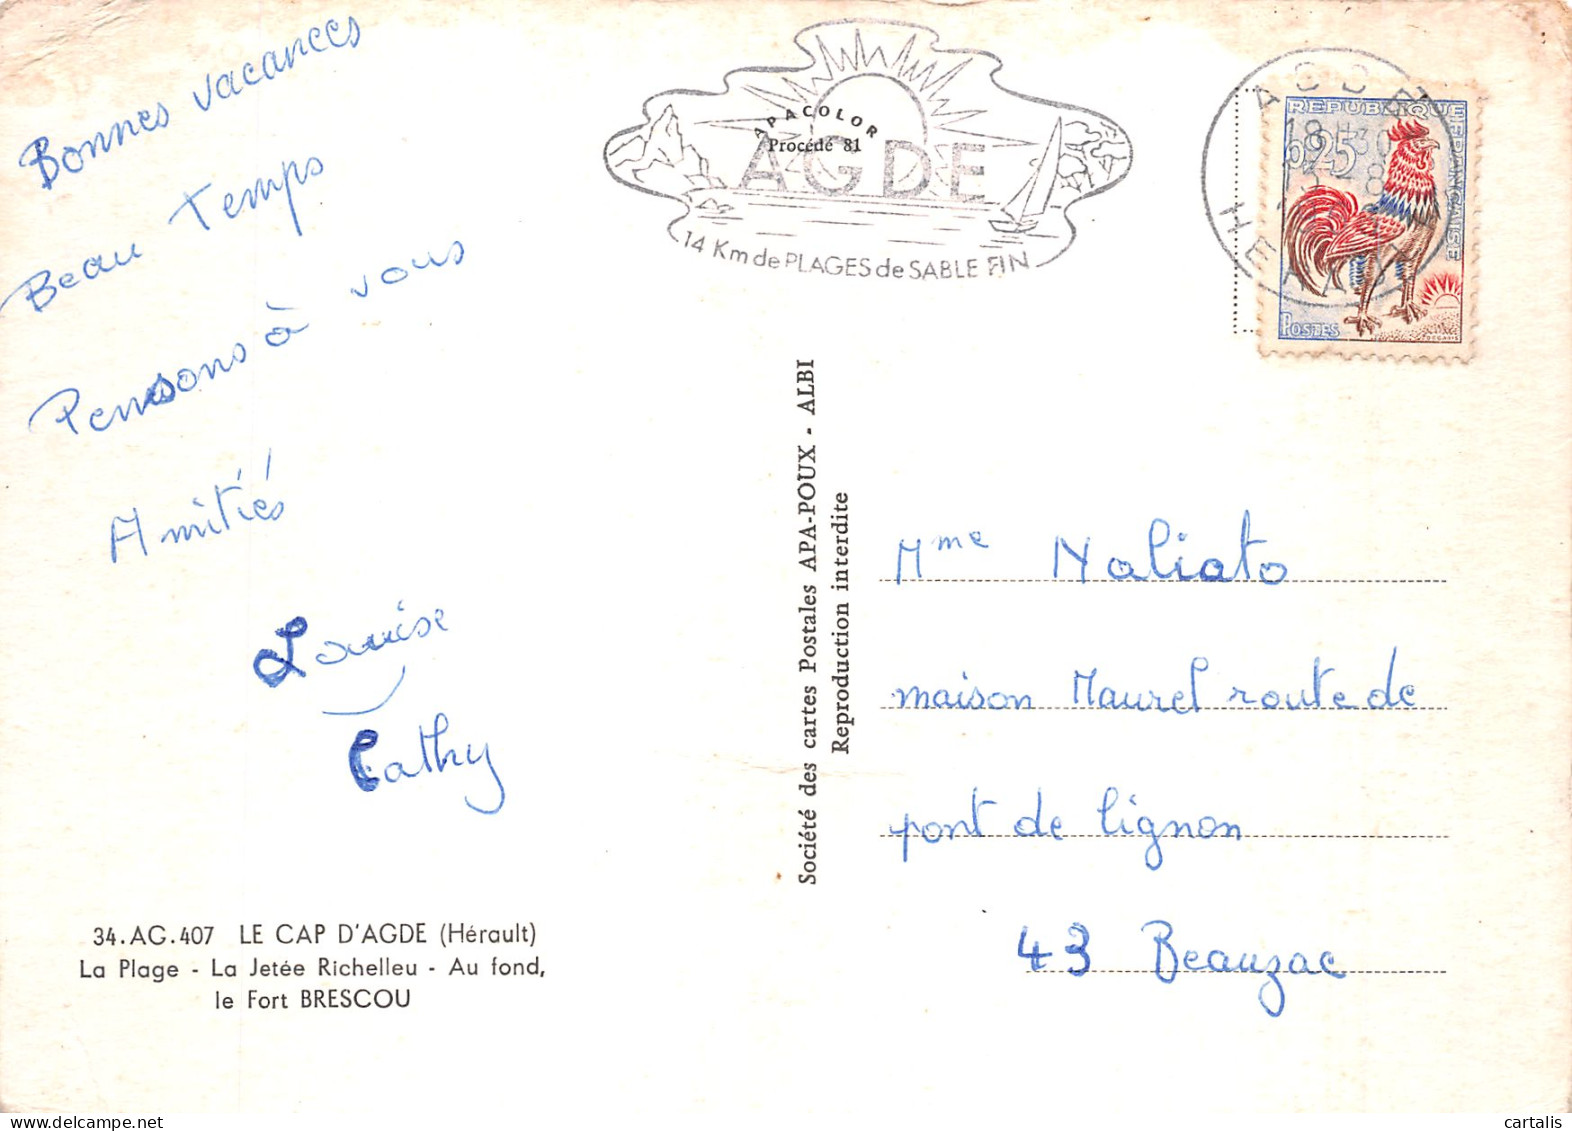 Bonnes vacances
Beau Temps
Pensons à vous
Amitiés
Louise
Cathy
34.AG.407 LE CAP D'AGDE (Hérault)
La Plage - La Jetée Richelleu - Au fond,
le Fort BRESCOU
APACOLOR
Procédé 81
AGDE
14 Km de PLAGES de SABLE FIN
Société des cartes Postales APA-POUX - ALBI
Reproduction interdite
AGDE
18H30
HERAULT
REPUBLIQUE FRANÇAISE
0,25
POSTES
DECARIS
Mme Naliato
maison Maurel route de
pont de lignon
43 Beauzac
cartalis